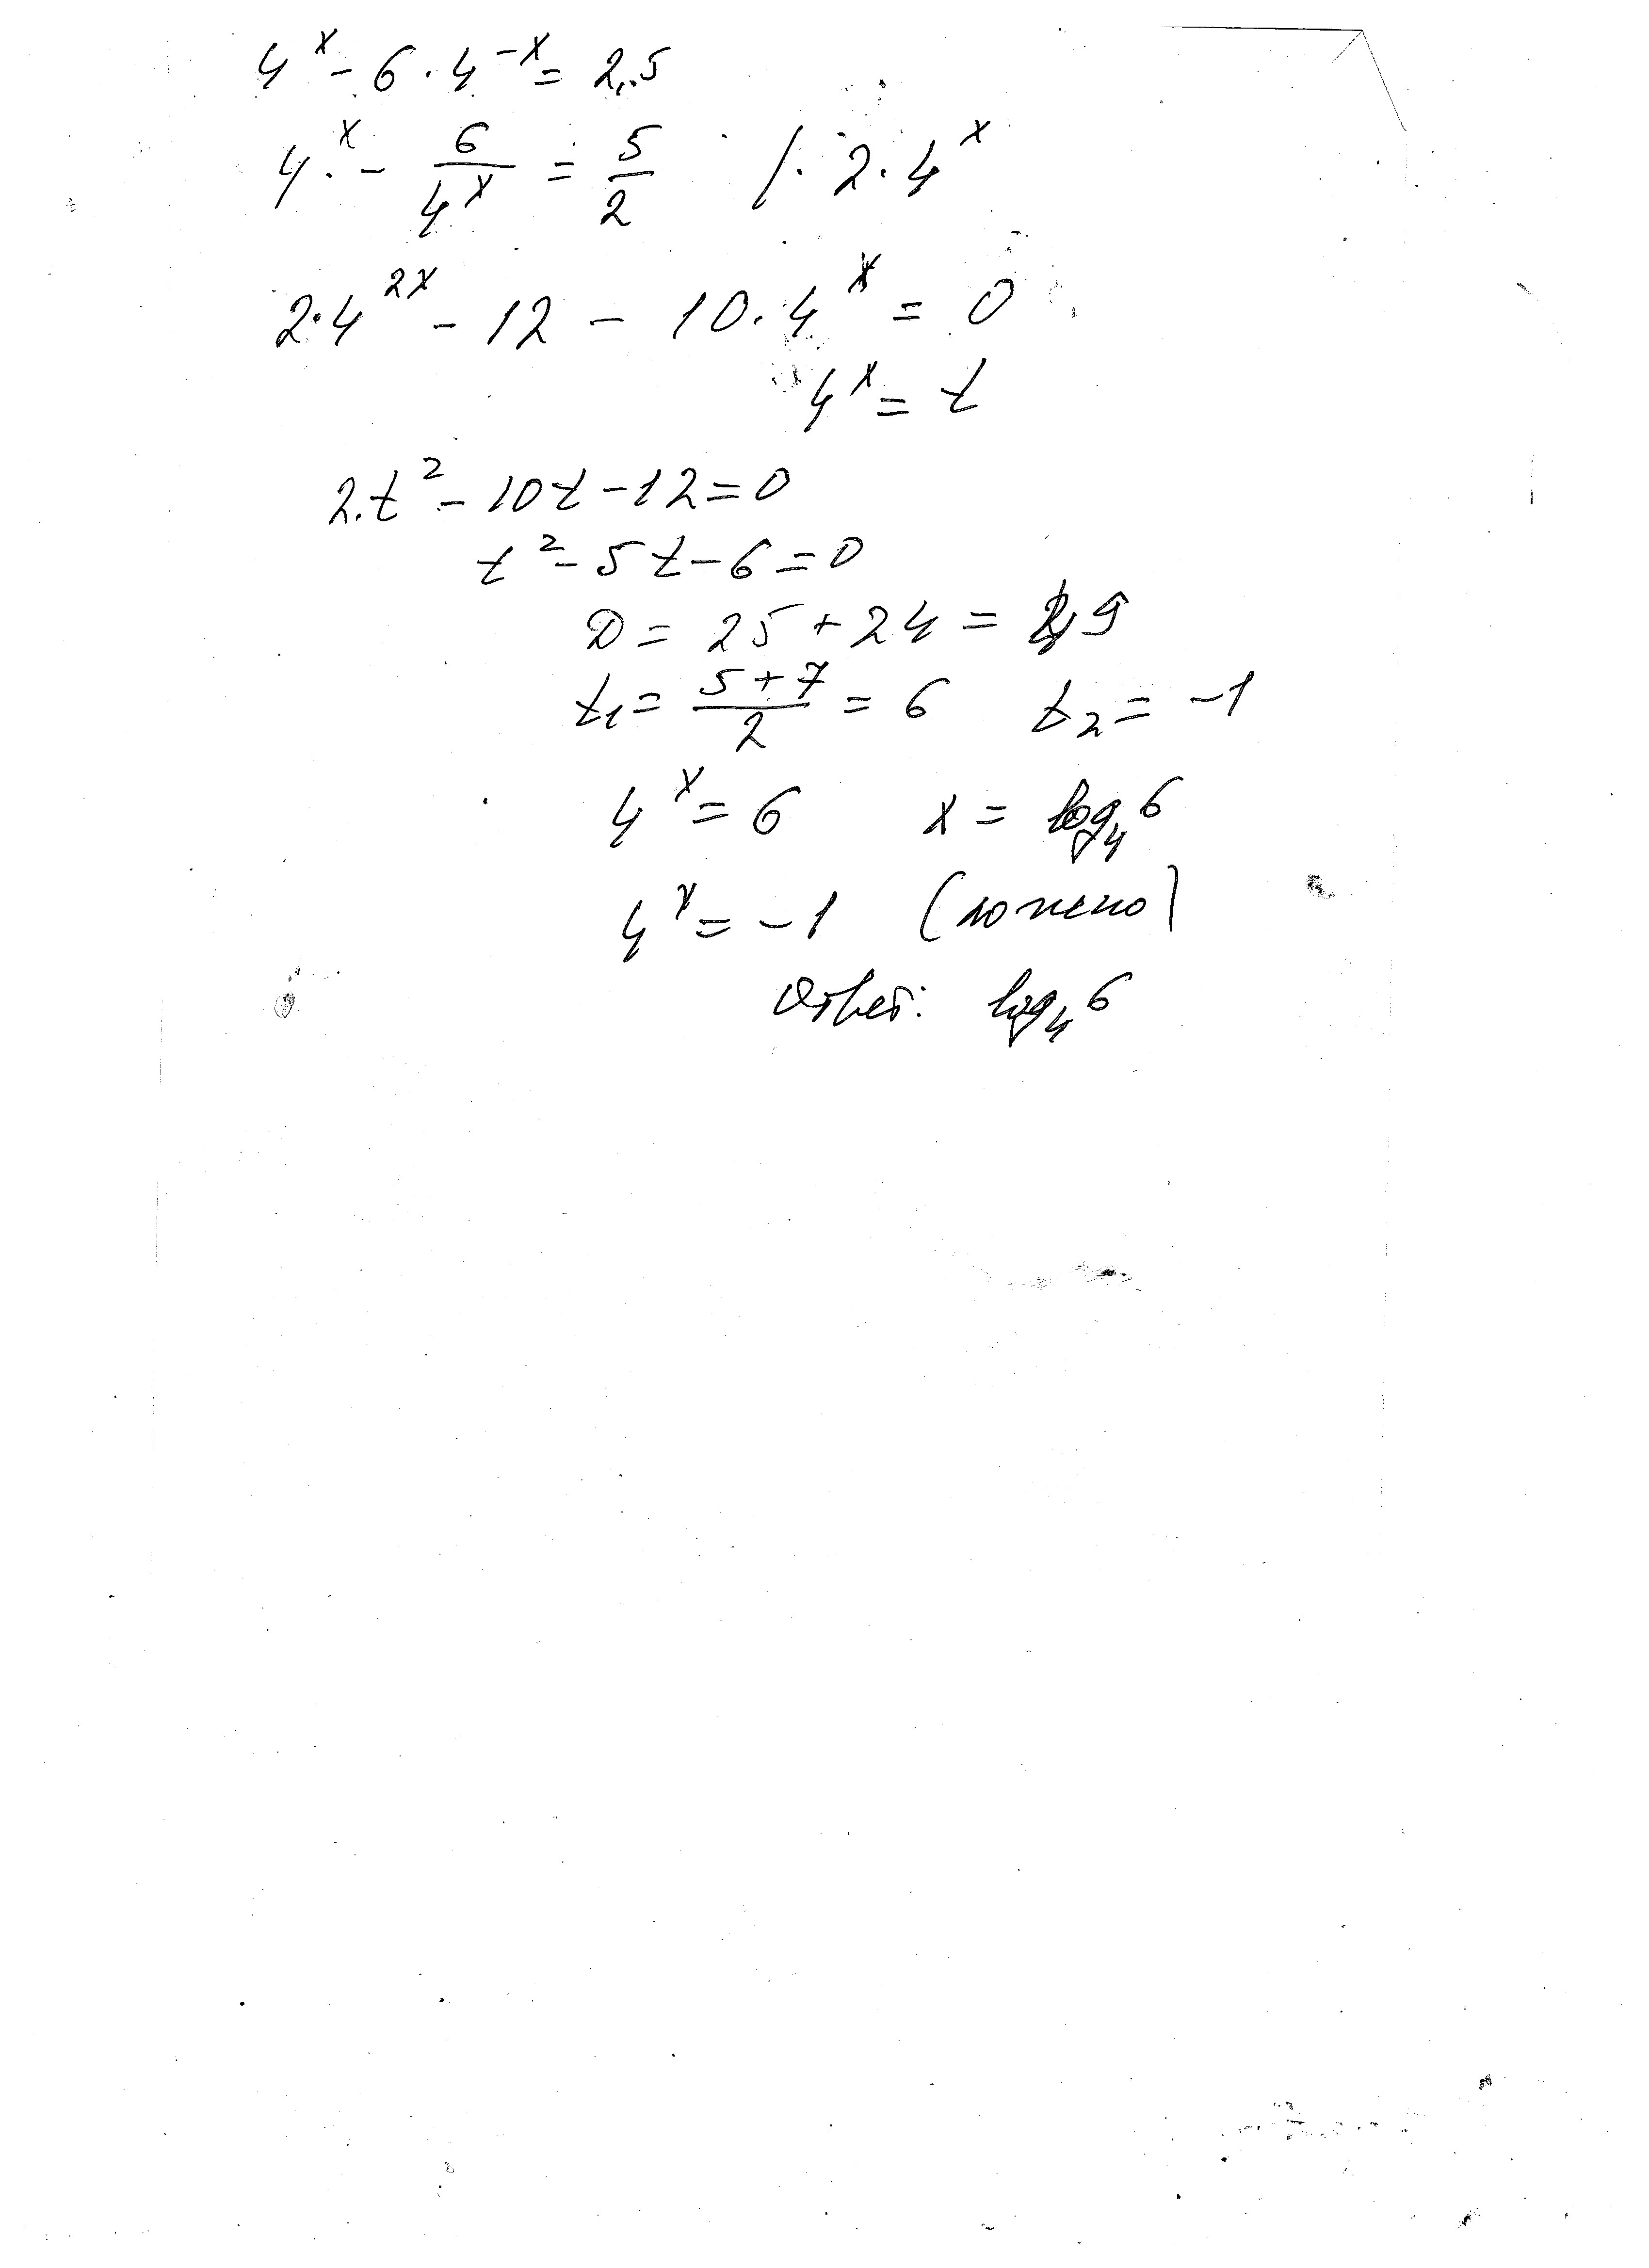 4^x - 6 · 4^-x = 2,5
4^x - 6/4^x = 5/2 /· 2 · 4^x
2·4^2x - 12 - 10 · 4^x = 0
4^x = t
2·t² - 10t - 12 = 0
t² - 5t - 6 = 0
D = 25 + 24 = 49
t₁ = (5+7)/2 = 6 t₂ = -1
4^x = 6 x = log₄6
4^x = -1 (ложно)
Ответ: log₄6